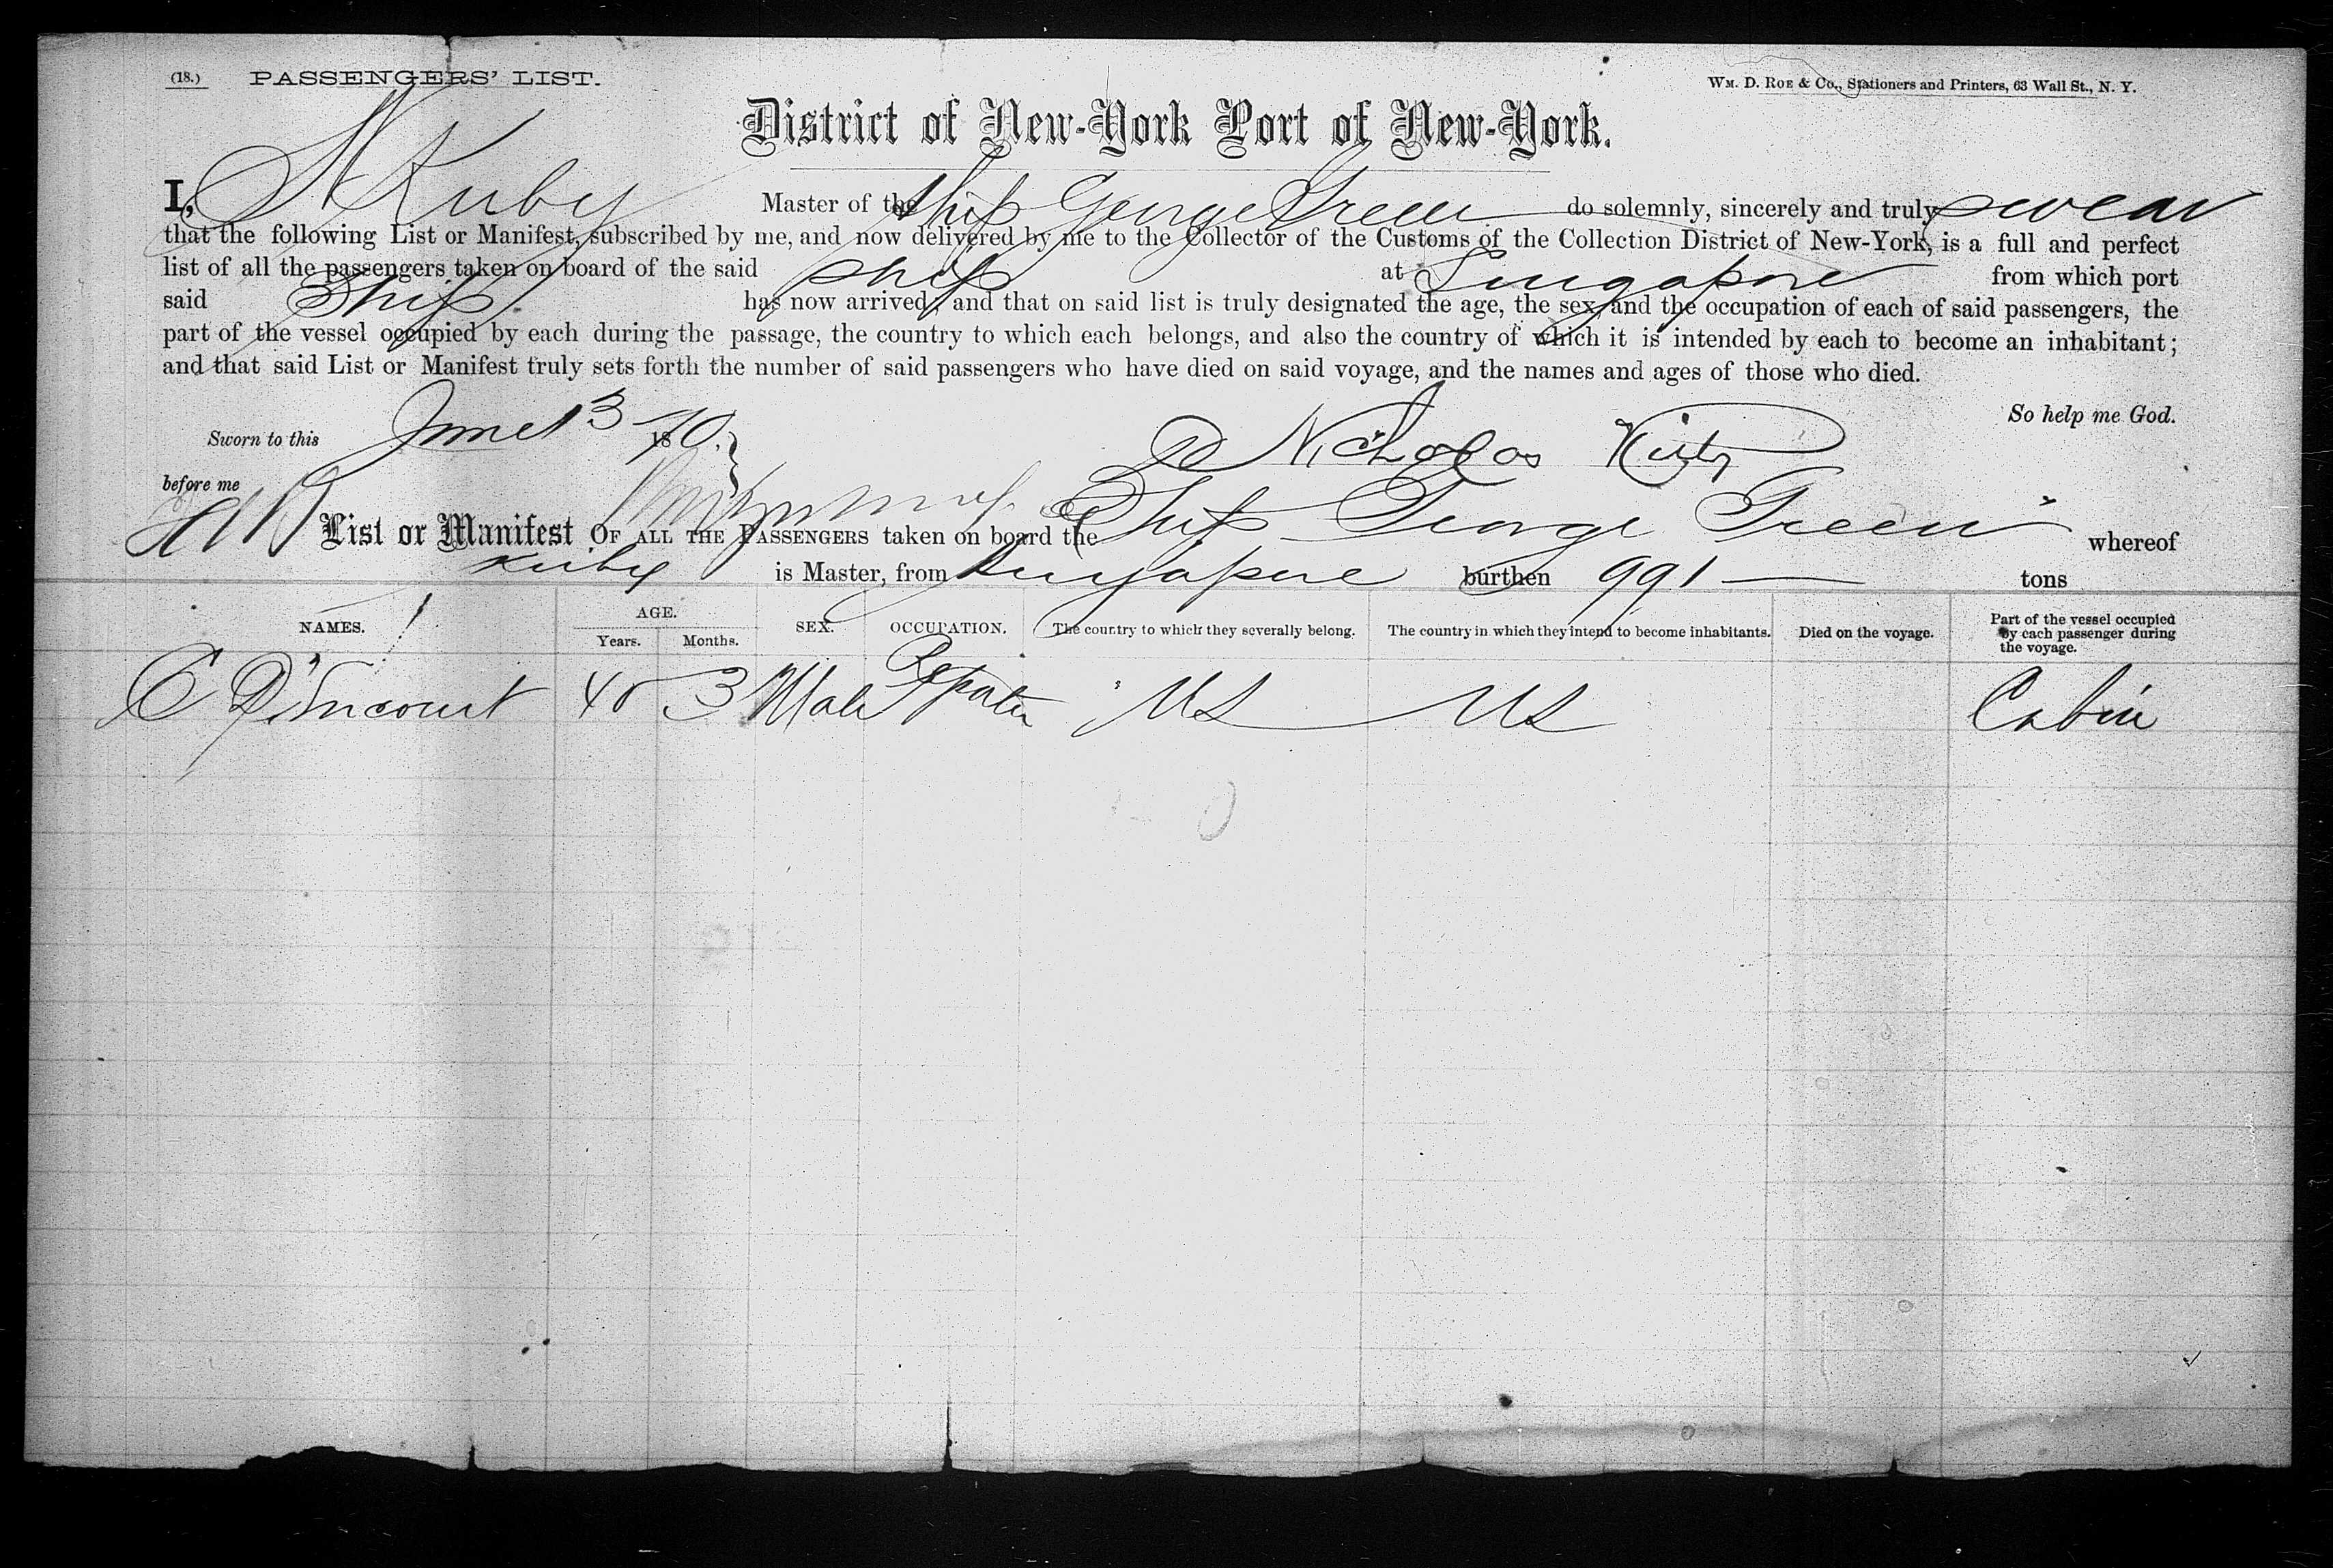 (18.) PASSENGERS' LIST.
WM. D. ROE & CO., Stationers and Printers, 63 Wall St., N. Y.
District of New-York Port of New-York.
I, N Kirby Master of the Ship George Green do solemnly, sincerely and truly swear
that the following List or Manifest, subscribed by me, and now delivered by me to the Collector of the Customs of the Collection District of New-York, is a full and perfect
list of all the passengers taken on board of the said Ship at Singapore from which port
said Ship has now arrived; and that on said list is truly designated the age, the sex, and the occupation of each of said passengers, the
part of the vessel occupied by each during the passage, the country to which each belongs, and also the country of which it is intended by each to become an inhabitant;
and that said List or Manifest truly sets forth the number of said passengers who have died on said voyage, and the names and ages of those who died.
So help me God.
Sworn to this June 13 1870.
Nicholas Kirby
before me
List or Manifest OF ALL THE PASSENGERS taken on board the Ship George Green whereof
Kirby is Master, from Singapore burthen 991 tons
NAMES. AGE. Years. Months. SEX. OCCUPATION. The country to which they severally belong. The country in which they intend to become inhabitants. Died on the voyage. Part of the vessel occupied by each passenger during the voyage.
C 40 3 Male US US Cabin